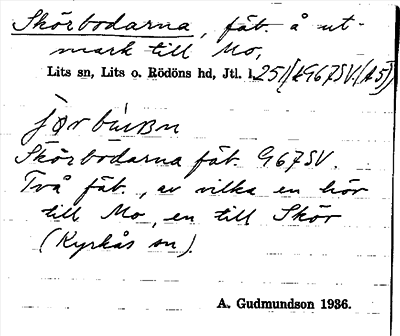 Skörbodarna, fäb. å ut-
mark till Mo,
Lits sn, Lits o. Rödöns hd, Jtl. l.
Skörbodarna fäb. G67SV.
Två fäb., av vilka en hör
till Mo, en till Skör
(Kyrkås sn).
A. Gudmundson 1936.